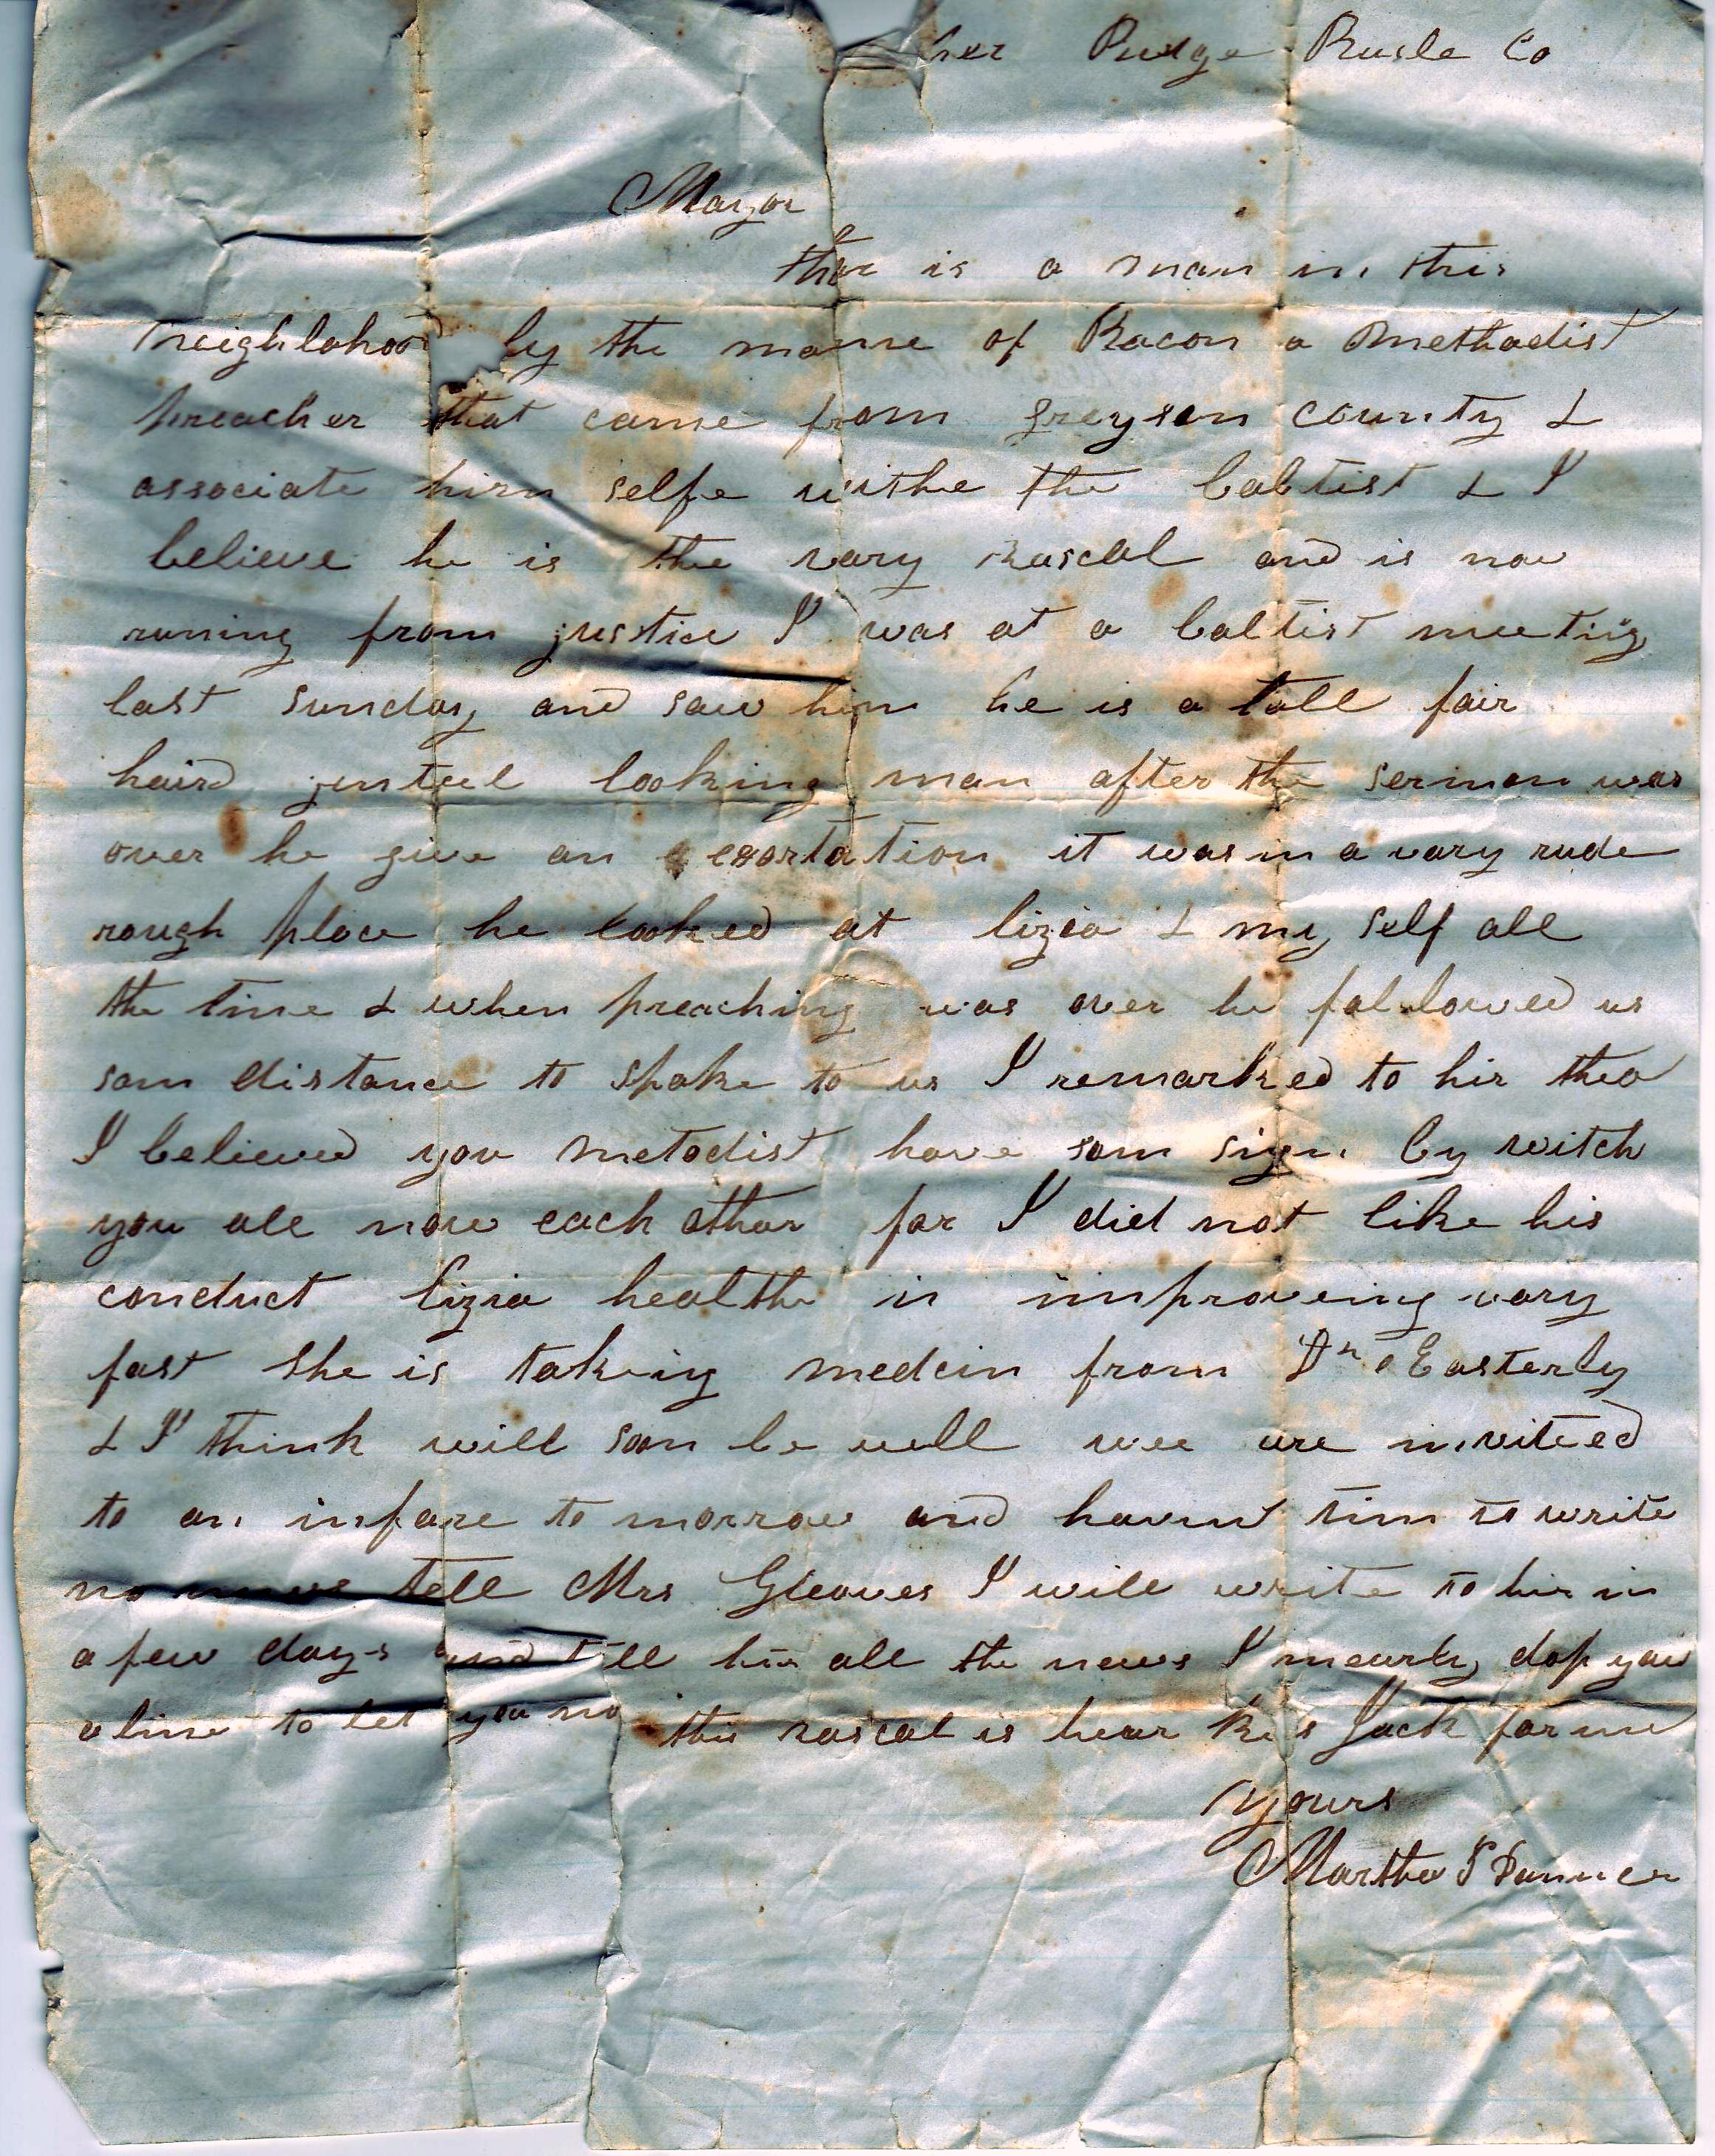 Rusle Co
Mayor
thar is a man in this
neighlohood by the name of Bacon a methodist
preacher that came from greyson county &
associate him selfe withe the babtist & I
believe he is the vary rascal and is now
runing from justice I was at a babtist meeting
last sunday and saw him he is a tall fair
haird genteel looking man after the sermon was
over he give an exortation it was in a vary rude
rough place he looked at lizia & my self all
the time & when preaching was over he followed us
som distance to spake to us I remarked to hir tha
I believed you metodist have som sign by witch
you all now each othar for I did not like his
conduct lizia healthe is improveing vary
fast she is taking medcin from Dr Easterly
& I think will soon be well wee are inviteed
to an infare to morrow and havent tim to write
no more tell Mrs Gleaves I will write to hir in
a few days and tell hir all the news I mearly dop you
a line to let you no this rascal is hear kis Jack for me
yours
Martha